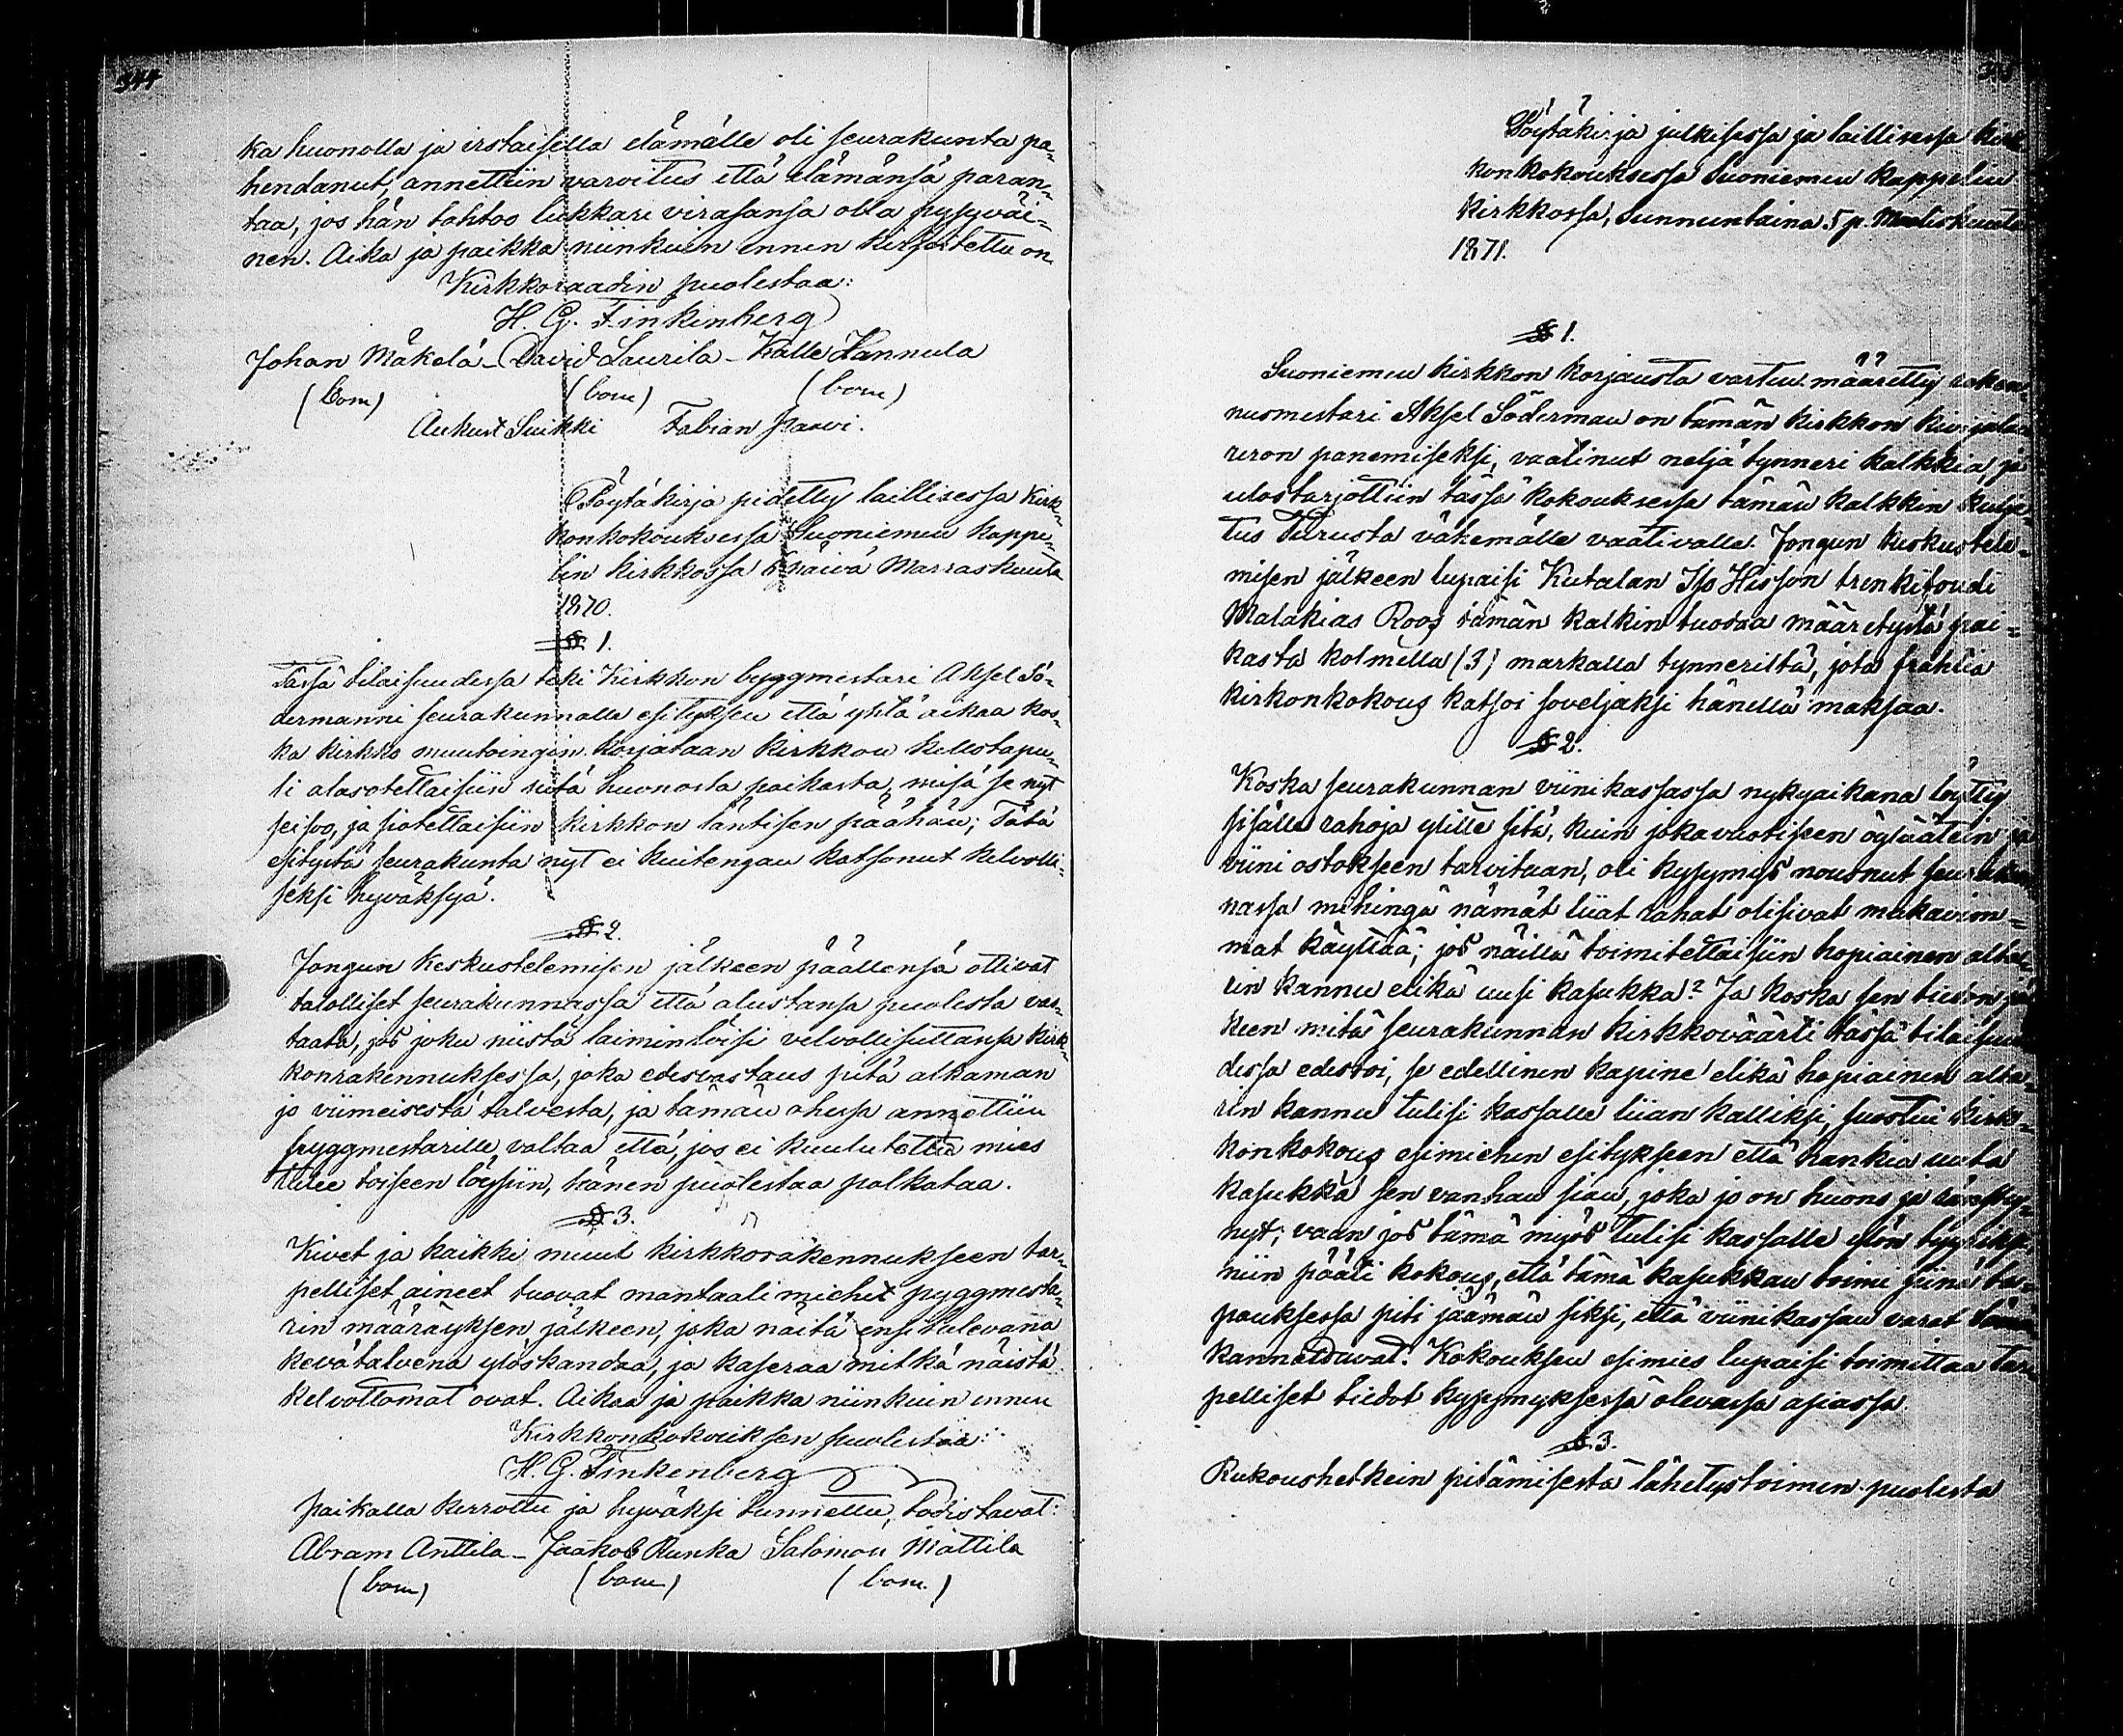 344
ka huonolla ja irstaisella elämälle oli seurakunta pa-
hendanut, annettiin varoitus että elämänsä paran-
taa, jos hän tahtoo lukkari virasansa olla pysyväi-
nen. Aika ja paikka niinkuin ennen kirjoitettu on
Kirkkoraadin puolestaa:
H. G. Finkenberg
Johan Mäkelä - David Laurila - Kalle Hannula
(bom) (bom) (bom)
Aukust Suikki Fabian Paavi.
Pöytäkirja pidetty laillisessa Kirk-
konkokouksessa Suoniemen kappe-
lin kirkkossa päivä Marraskuuta
1870.
§ 1.
Tässä tilaisuudessa teki Kirkkon byggmestari Aksel Sö-
dermanni seurakunnalle esityksen että yhtä aikaa kos-
ka kirkko muutoingin korjataan kirkkon kellotapu-
li alasotettaisiin siitä huonosta paikasta, misä se nyt
seisoo, ja siotettaisiin kirkkon läntisen päähän; Tätä
esitystä seurakunta nyt ei kuitengan katsonut kelvolli-
seksi hyväksyä.
§ 2.
Jongun keskustelemisen jälkeen päällensä ottivat
talolliset seurakunnassa että alustansa puolesta vas-
taata, jos joku niistä laiminlöisi velvollisuttansa kirk-
konrakennuksessa, joka edesvastaus pitä alkaman
jo viimeisestä talvesta, ja tämän ohessa annettiin
byggmestarille valtaa että, jos ei kuulutettu mies
tule toiseen löysiin, hänen puolestaa palkataa.
§ 3.
Kivet ja kaikki muut kirkkorakennukseen tar-
pelliset aineet tuovat mantaali miehet pyggmesta-
rin määräyksen jälkeen, joka näitä ensi tulevana
kevätalvena ylöskandaa, ja kaseraa mitkä näistä
kelvottomat ovat. Aikaa ja paikka niinkuin ennen
Kirkkonkokouksen puolestaa:
H. G. Finkenberg
paikalla kerrottu ja hyväksi tunnettu, todistavat:
Abram Anttila - Jaakob Runka Salomon Mattila
(bom) (bom) (bom.)
Pöytäkirja julkisessa ja laillisessa kirk
konkokouksessa Suoniemen kappelin
kirkkossa, sunnuntaina 5 p. Maaliskuuta
1871.
§ 1.
Suoniemen kirkkon korjausta varten määretty raken-
nusmestari Aksel Söderman on tämän kirkkon kivijalan
reron panemiseksi, vaatinut neljä tynneri kalkkia, ja
ulostarjottiin tässä kokouksessa tämän kalkkin kulje-
tus Turusta vähemälle vaativalle. Jongun keskustele-
misen jälkeen lupaisi Kutalan Iso Hisson trenkifoudi
Malakias Roos tämän kalkin tuodaa määretystä pai-
kasta kolmella (3) markalla tynneriltä, jota frahtia
kirkonkokous katsoi soveljaksi hänellä maksaa.
§ 2.
Koska seurakunnan viinikassassa nykyaikana löyttiy
sisälle rahoja ylitte sitä, kuin jokavuotiseen öyläätein ja
viini ostokseen tarvitaan, oli kysymys nousnut seurakun
nassa mihingä nämät liiat rahat olisivat mukavim-
mat käyttää; jos näillä toimitettaisiin hopiainen altta
rin kannu elikä uusi kasukka? Ja koska sen tiedon jäl
keen mitä seurakunnan kirkkoväärti tässä tilaisuu
dessa edestoi, se edellinen kapine elikä hopiainen alta-
rin kannu tulisi kassalle liian kalliksi, suostui kirk-
konkokous esimiehen esitykseen että hankia uuta
kasukka sen vanhan sian, joka jo on huono ja
nyt; vaan jos tämä myös tulisi kassalle ylön
niin pääti kokous, että tämä kasukkan toimi siinä ta-
pauksessa piti jäämän siksi, että viinikassan varat tämän
kannattavat. Kokouksen esimies lupaisi toimittaa tar-
pelliset tiedot kysymyksessä olevassa asiassa.
§ 3.
Rukoushetkein pitämisestä lähetystoimen puolesta